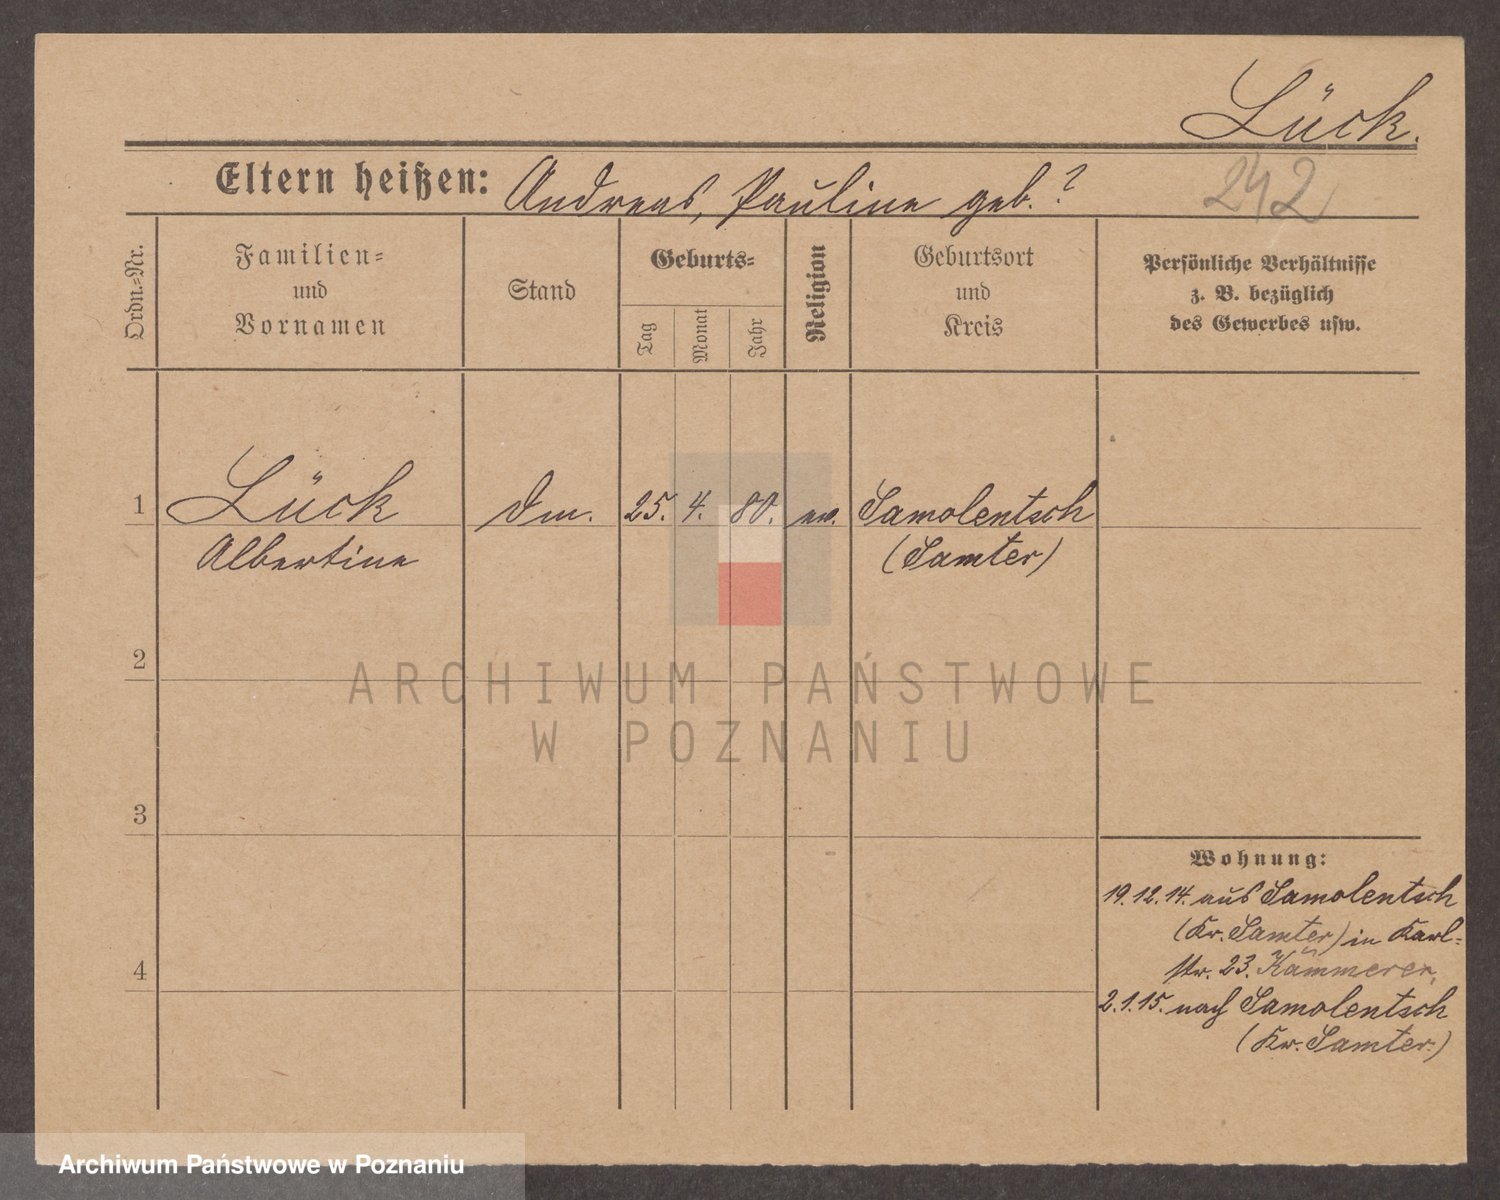 Lück.
Eltern heißen: Andreas, Pauline geb. ?
242
Ordn.-Nr.
Familien-
und
Vornamen
Stand
Geburts-
Tag
Monat
Jahr
Religion
Geburtsort
und
Kreis
Persönliche Verhältnisse
z. B. bezüglich
des Gewerbes usw.
1 Lück Dm. 25. 4. 80. ev. Samolentsch
Albertine (Samter)
2
ARCHIWUM PAŃSTWOWE
W POZNANIU
3
Wohnung:
19.12.14. aus Samolentsch
(Kr. Samter) in Karl-
str. 23. Kämmerer,
4
2.1.15. nach Samolentsch
(Kr. Samter.)
Archiwum Państwowe w Poznaniu